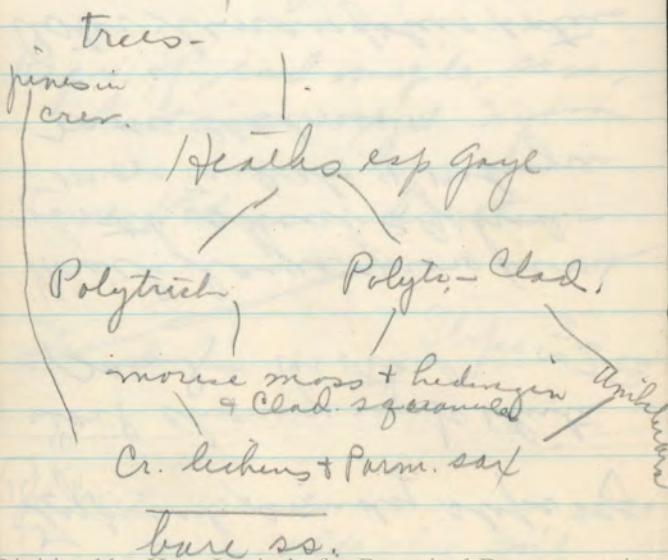 trees-
pines in
crev.
Heaths esp Gayl
Polytrich
Polytr.- Clad.
mouse moss + hedwigia
& Clad. squamules
Cr. lichens + Parm. sax
bare ss.